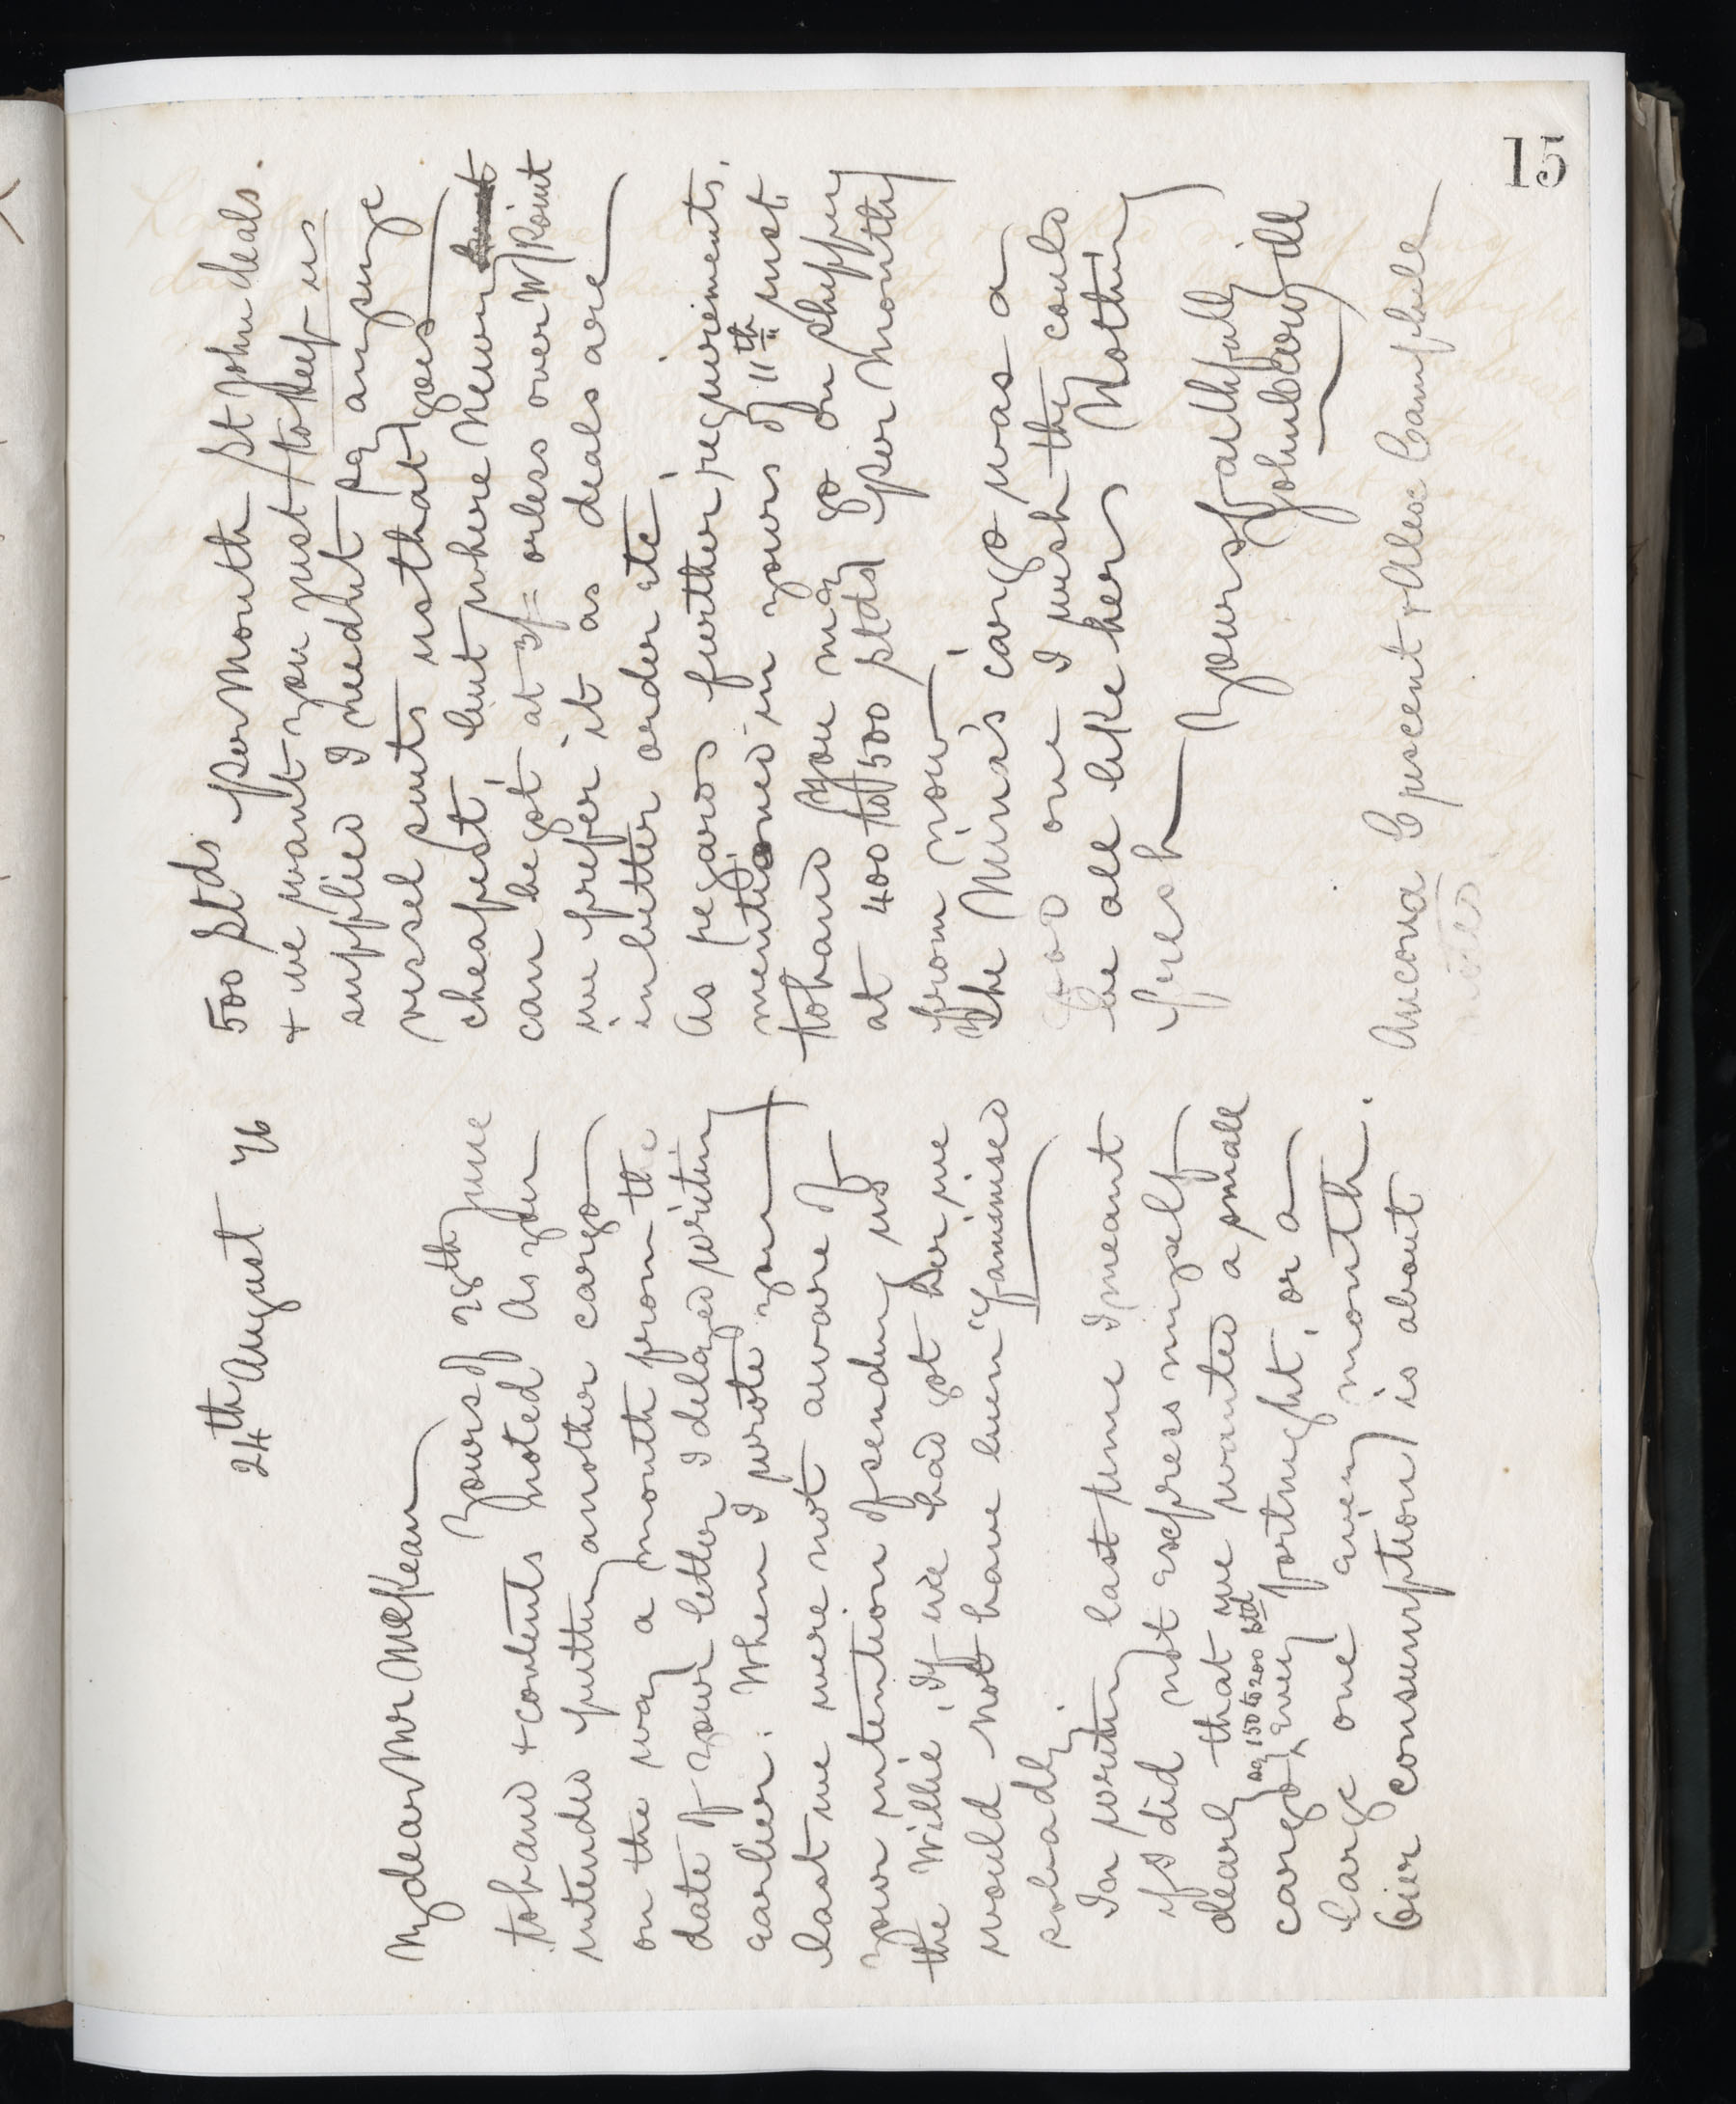 15
24th August 76
My dear Mr McKean
Yours of 28th June
to hand & contents noted As you
intended putting another cargo
on the way a month from the
date of your letter I delayed writing
earlier. When I wrote you
last we were not aware of
your intention of sending us
the Willie, If we had got her we
would not have been "Jammised
soloadly.
In writing last June I meant
if I did not express myself
clearly that we wanted a small
cargo say 150 to 200 Std every fortnight, or a
large one every month.
Our consumption is about
500 Stds per Month St John deals.
& we want you just to keep us
supplied I needn't say any size
vessel suits us that goes
cheapest, but where Newport
can be got at 3/= or less over W Point
we prefer it as deals are
in better order etc.
As regards further requirements.
mentioned in yours of 11th inst
to hand You may go on shipping
at 400 to 500 stds per month
from now.
The Mina's cargo was a
good one I wish they could
be all like hers Nothing
fresh
Yours faithfully
John Cowdill
Ancona Crescent & Alex Campbell
noted